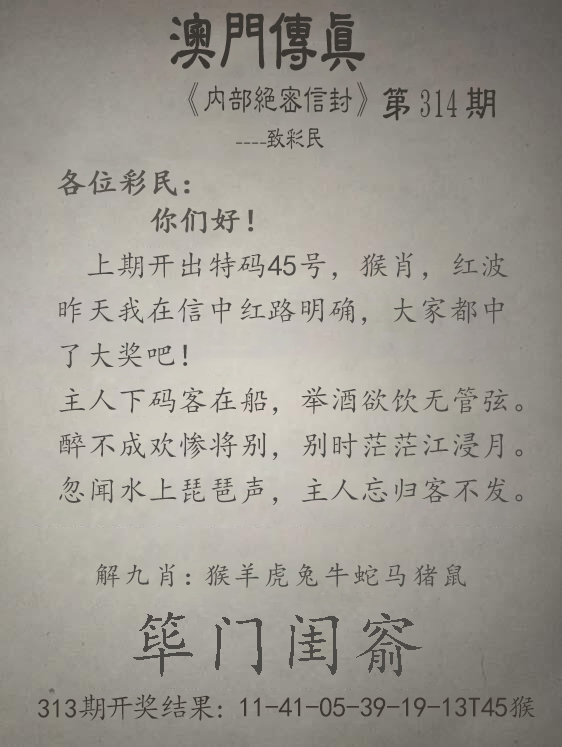 澳門傳真
《内部絕密信封》第314期
----致彩民
各位彩民：
你们好！
上期开出特码45号，猴肖，红波
昨天我在信中红路明确，大家都中
了大奖吧！
主人下码客在船，举酒欲饮无管弦。
醉不成欢惨将别，别时茫茫江浸月。
忽闻水上琵琶声，主人忘归客不发。
解九肖：猴羊虎兔牛蛇马猪鼠
筚门闺窬
313期开奖结果：11-41-05-39-19-13T45猴